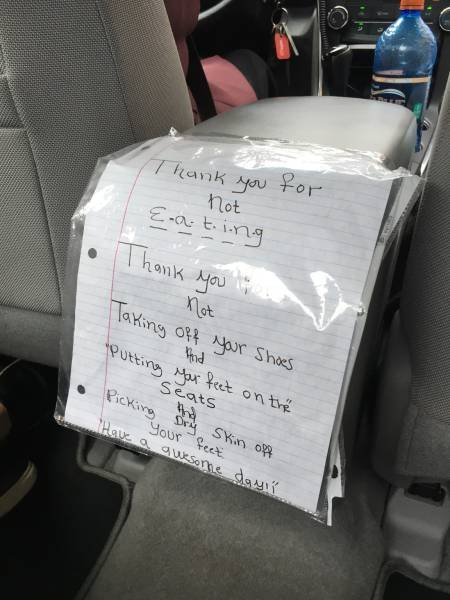 Thank you for
Not
E.a.t.i.n.g
Thank you
Not
Taking off your shoes
And
"Putting your feet on the"
Seats
And
Picking Dry skin off
Your feet
"Have a awesome day!!"